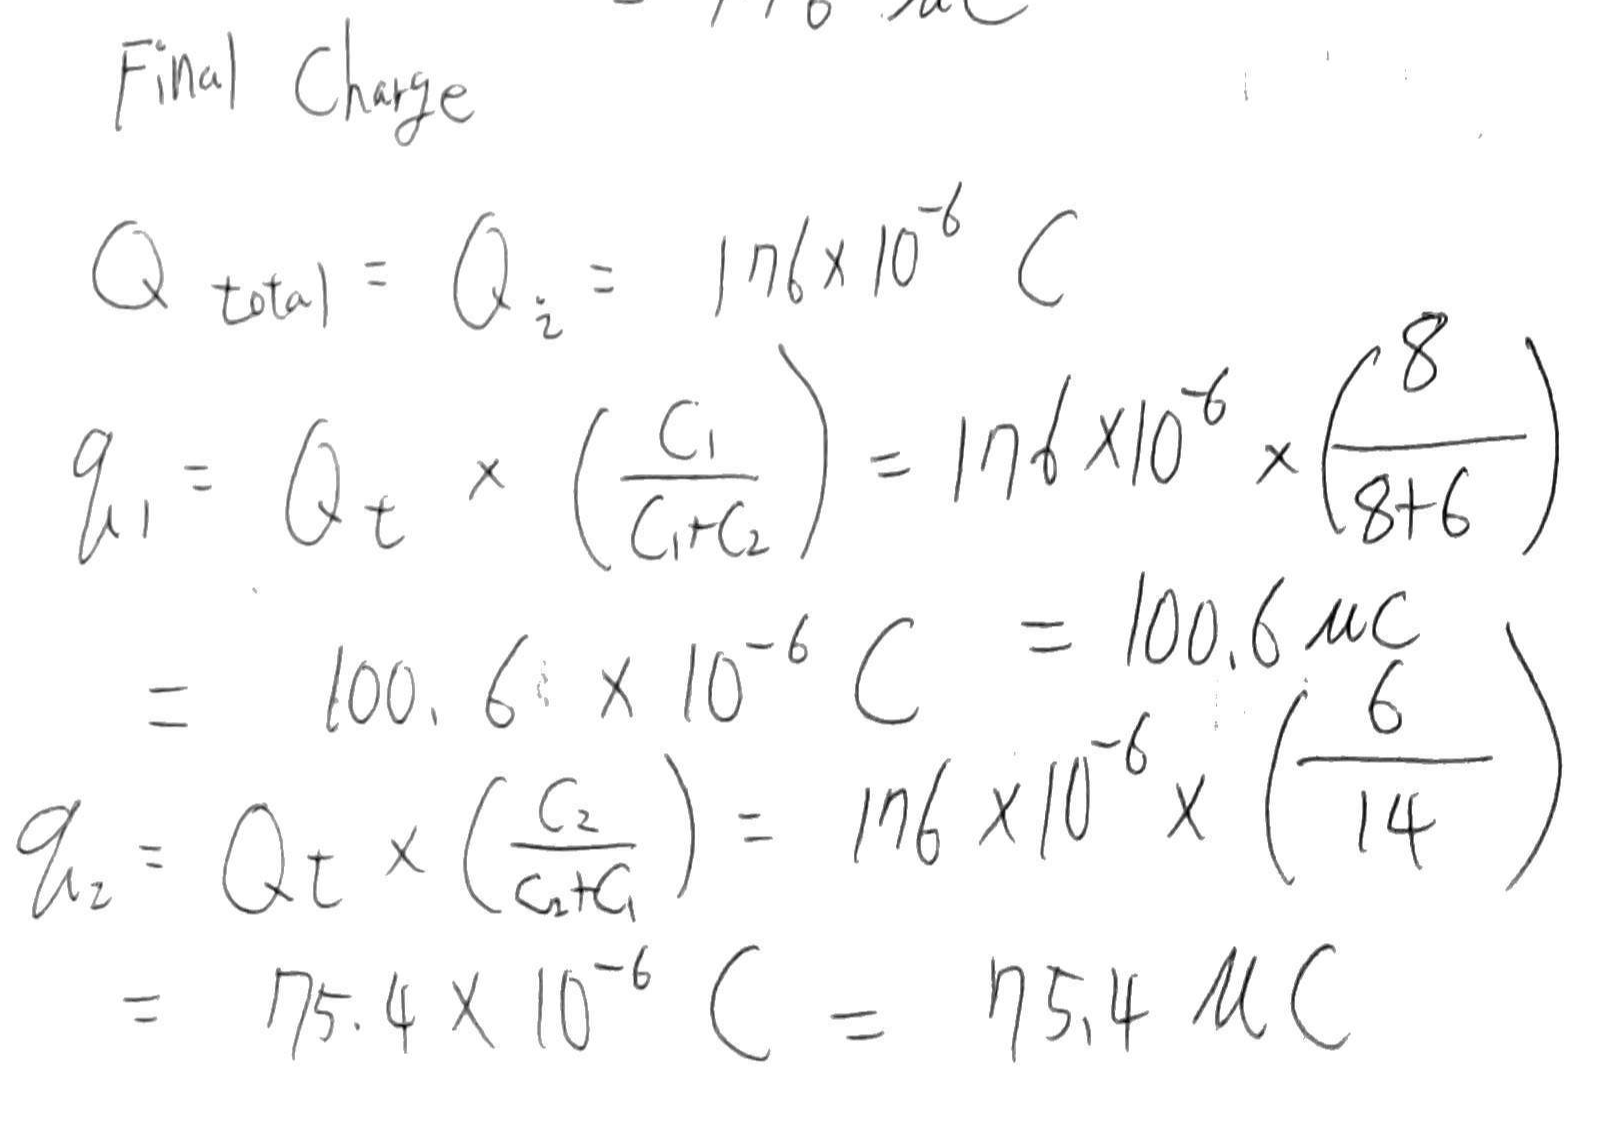 = 176 μC
Final Charge
Q total = Qi = 176×10⁻⁶ C
q₁ = Qt × (C₁/(C₁+C₂)) = 176×10⁻⁶ × (8/(8+6))
= 100.6 × 10⁻⁶ C = 100.6 μC
q₂ = Qt × (C₂/(C₂+C₁)) = 176×10⁻⁶ × (6/14)
= 75.4 × 10⁻⁶ C = 75.4 μC